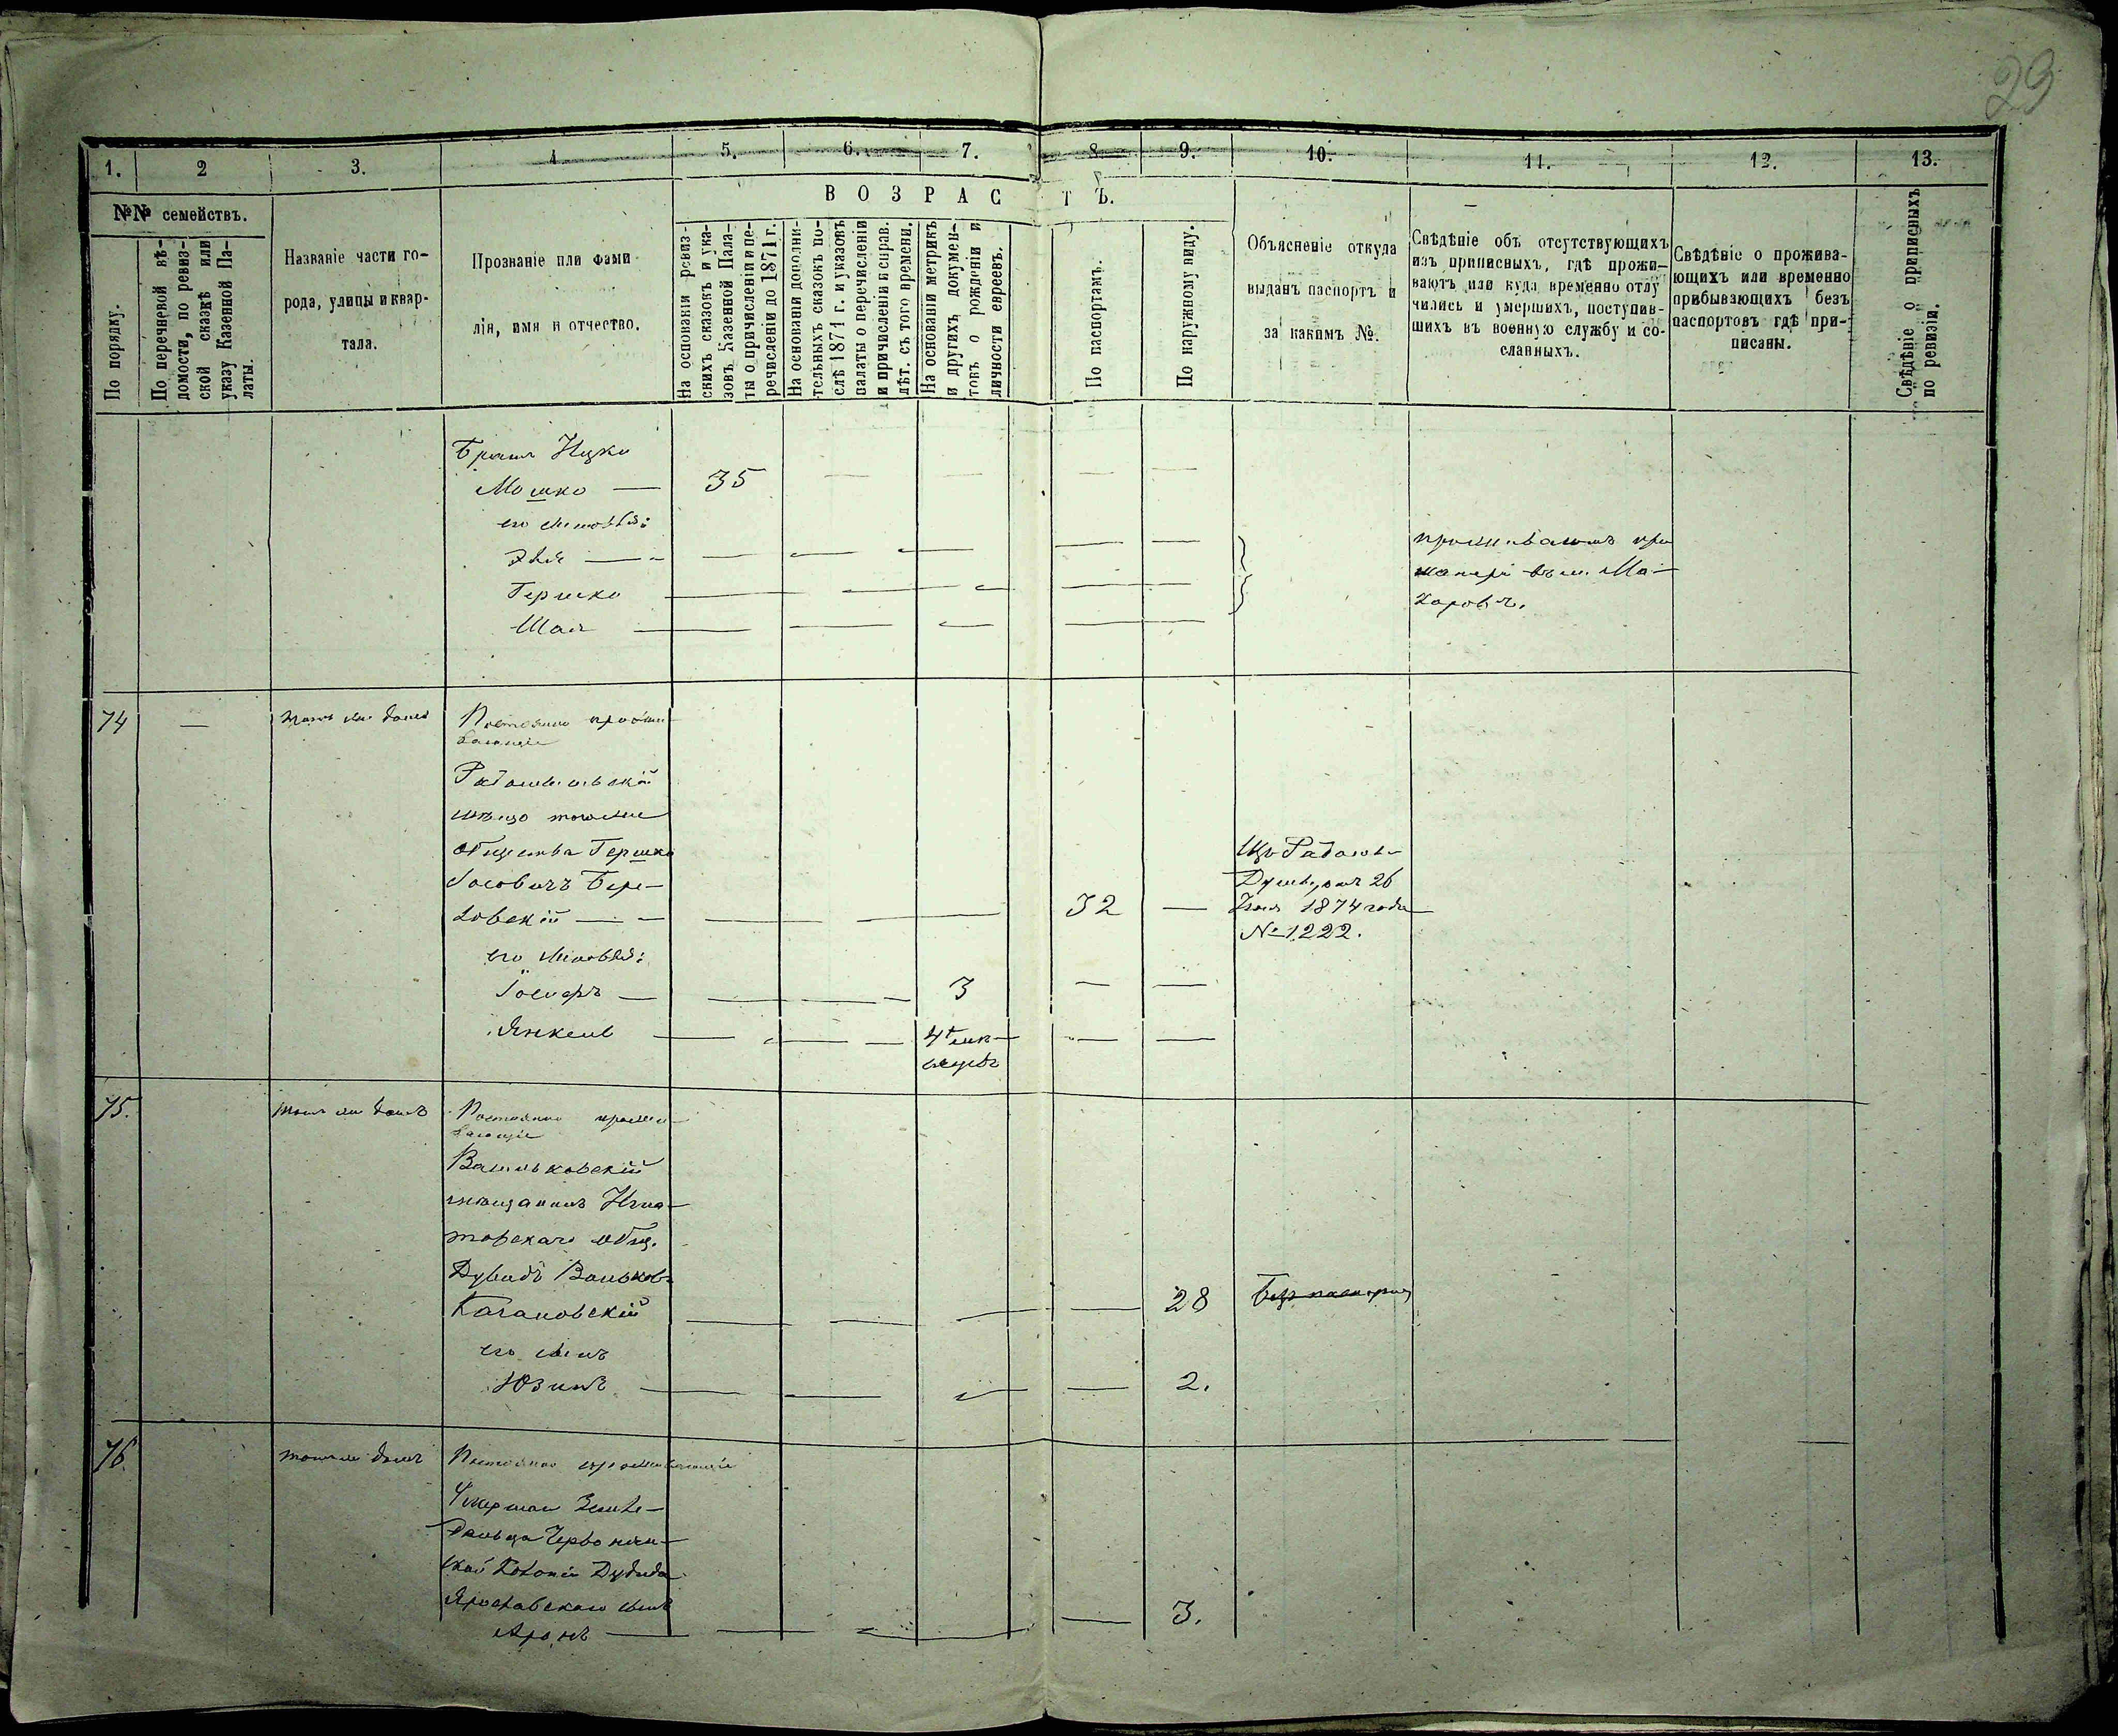 29
1. 2 3. 4 5. 6. 7. 8 9. 10. 11. 12. 13.
№№ семействъ.
В О З Р А С Т Ъ.
По порядку.
По перечневой вѣ-
домости, по ревиз-
ской сказкѣ или
указу Казенной Па-
латы.
Названіе части го-
рода, улицы и квар-
тала.
Прозваніе или фами
лія, имя и отчество.
На основаніи ревиз-
скихъ сказокъ и ука-
зовъ Казенной Пала-
ты о причисленіи и пе-
речисленіи до 1871 г.
На основаніи дополни-
тельныхъ сказокъ по-
слѣ 1871 г. и указовъ
палаты о перечисленіи
и причисленіи и справ.
лѣт. съ того времени.
На основаніи метрикъ
и другихъ докумен-
товъ о рожденіи и
личности евреевъ.
По паспортамъ.
По наружному виду.
Объясненіе откуда
выданъ паспортъ и
за какимъ №.
Свѣдѣніе объ отсутствующихъ
изъ приписныхъ, гдѣ прожи-
ваютъ или куда временно отлу
чились и умершихъ, поступив-
шихъ въ военную службу и со-
сланныхъ.
Свѣдѣніе о прожива-
ющихъ или временно
прибывающихъ безъ
паспортовъ гдѣ при-
писаны.
Свѣдѣніе о приписныхъ
по ревизіи.
Братъ Ицко
Мошко — 35 — — — —
его сыновья:
— — — — — —
Гершко — — — — —
Шая — — — — —
проживаютъ при
матери въ м. Ма-
каровѣ.
74 — томъ же домѣ
Постоянно прожи-
вающіе
Радомысльскій
мѣщ
общества Гершко
Іосовичъ Бере-
зовскій — — — 32 —
Изъ Радом
Думы, отъ 26
1874 года
№ 1222.
его сыновья:
Іосифъ — — — 3 — —
Янкель — — — 4 мѣ-
сяцевъ — —
75. томъ же домѣ
Постоянно прожи-
вающіе
Васильковскій
мѣщанинъ Игна-
товскаго общ.
Дувидъ Вольков.
Качановскій — — — — 28 Безъ паспорта
его сынъ
— — — — 2.
76. томъ же домѣ
Постоянно проживающіе
Умершаго Землѣ-
дѣльца Червонян-
ской Колоніи Дувида
Ярославскаго сынъ
Аронъ — — — — 3.